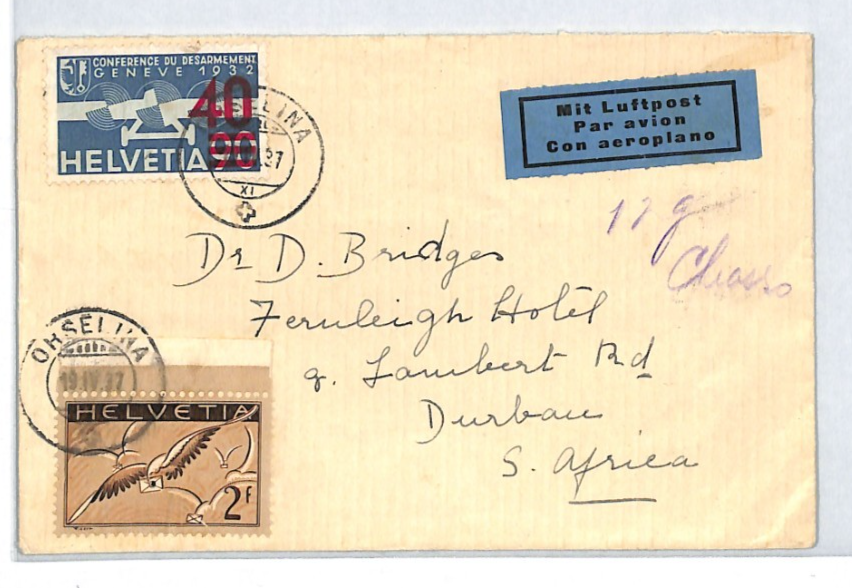 CONFERENCE DU DESARMEMENT
GENEVE 1932
40
HELVETIA 90
ORSELINA
.37
XI
Mit Luftpost
Par avion
Con aeroplano
17 g
Chiasso
Dr D. Bridges
Fernleigh Hotel
9. Lambert Rd
Durban
S. Africa
ORSELINA
19.IV.37
HELVETIA
2F